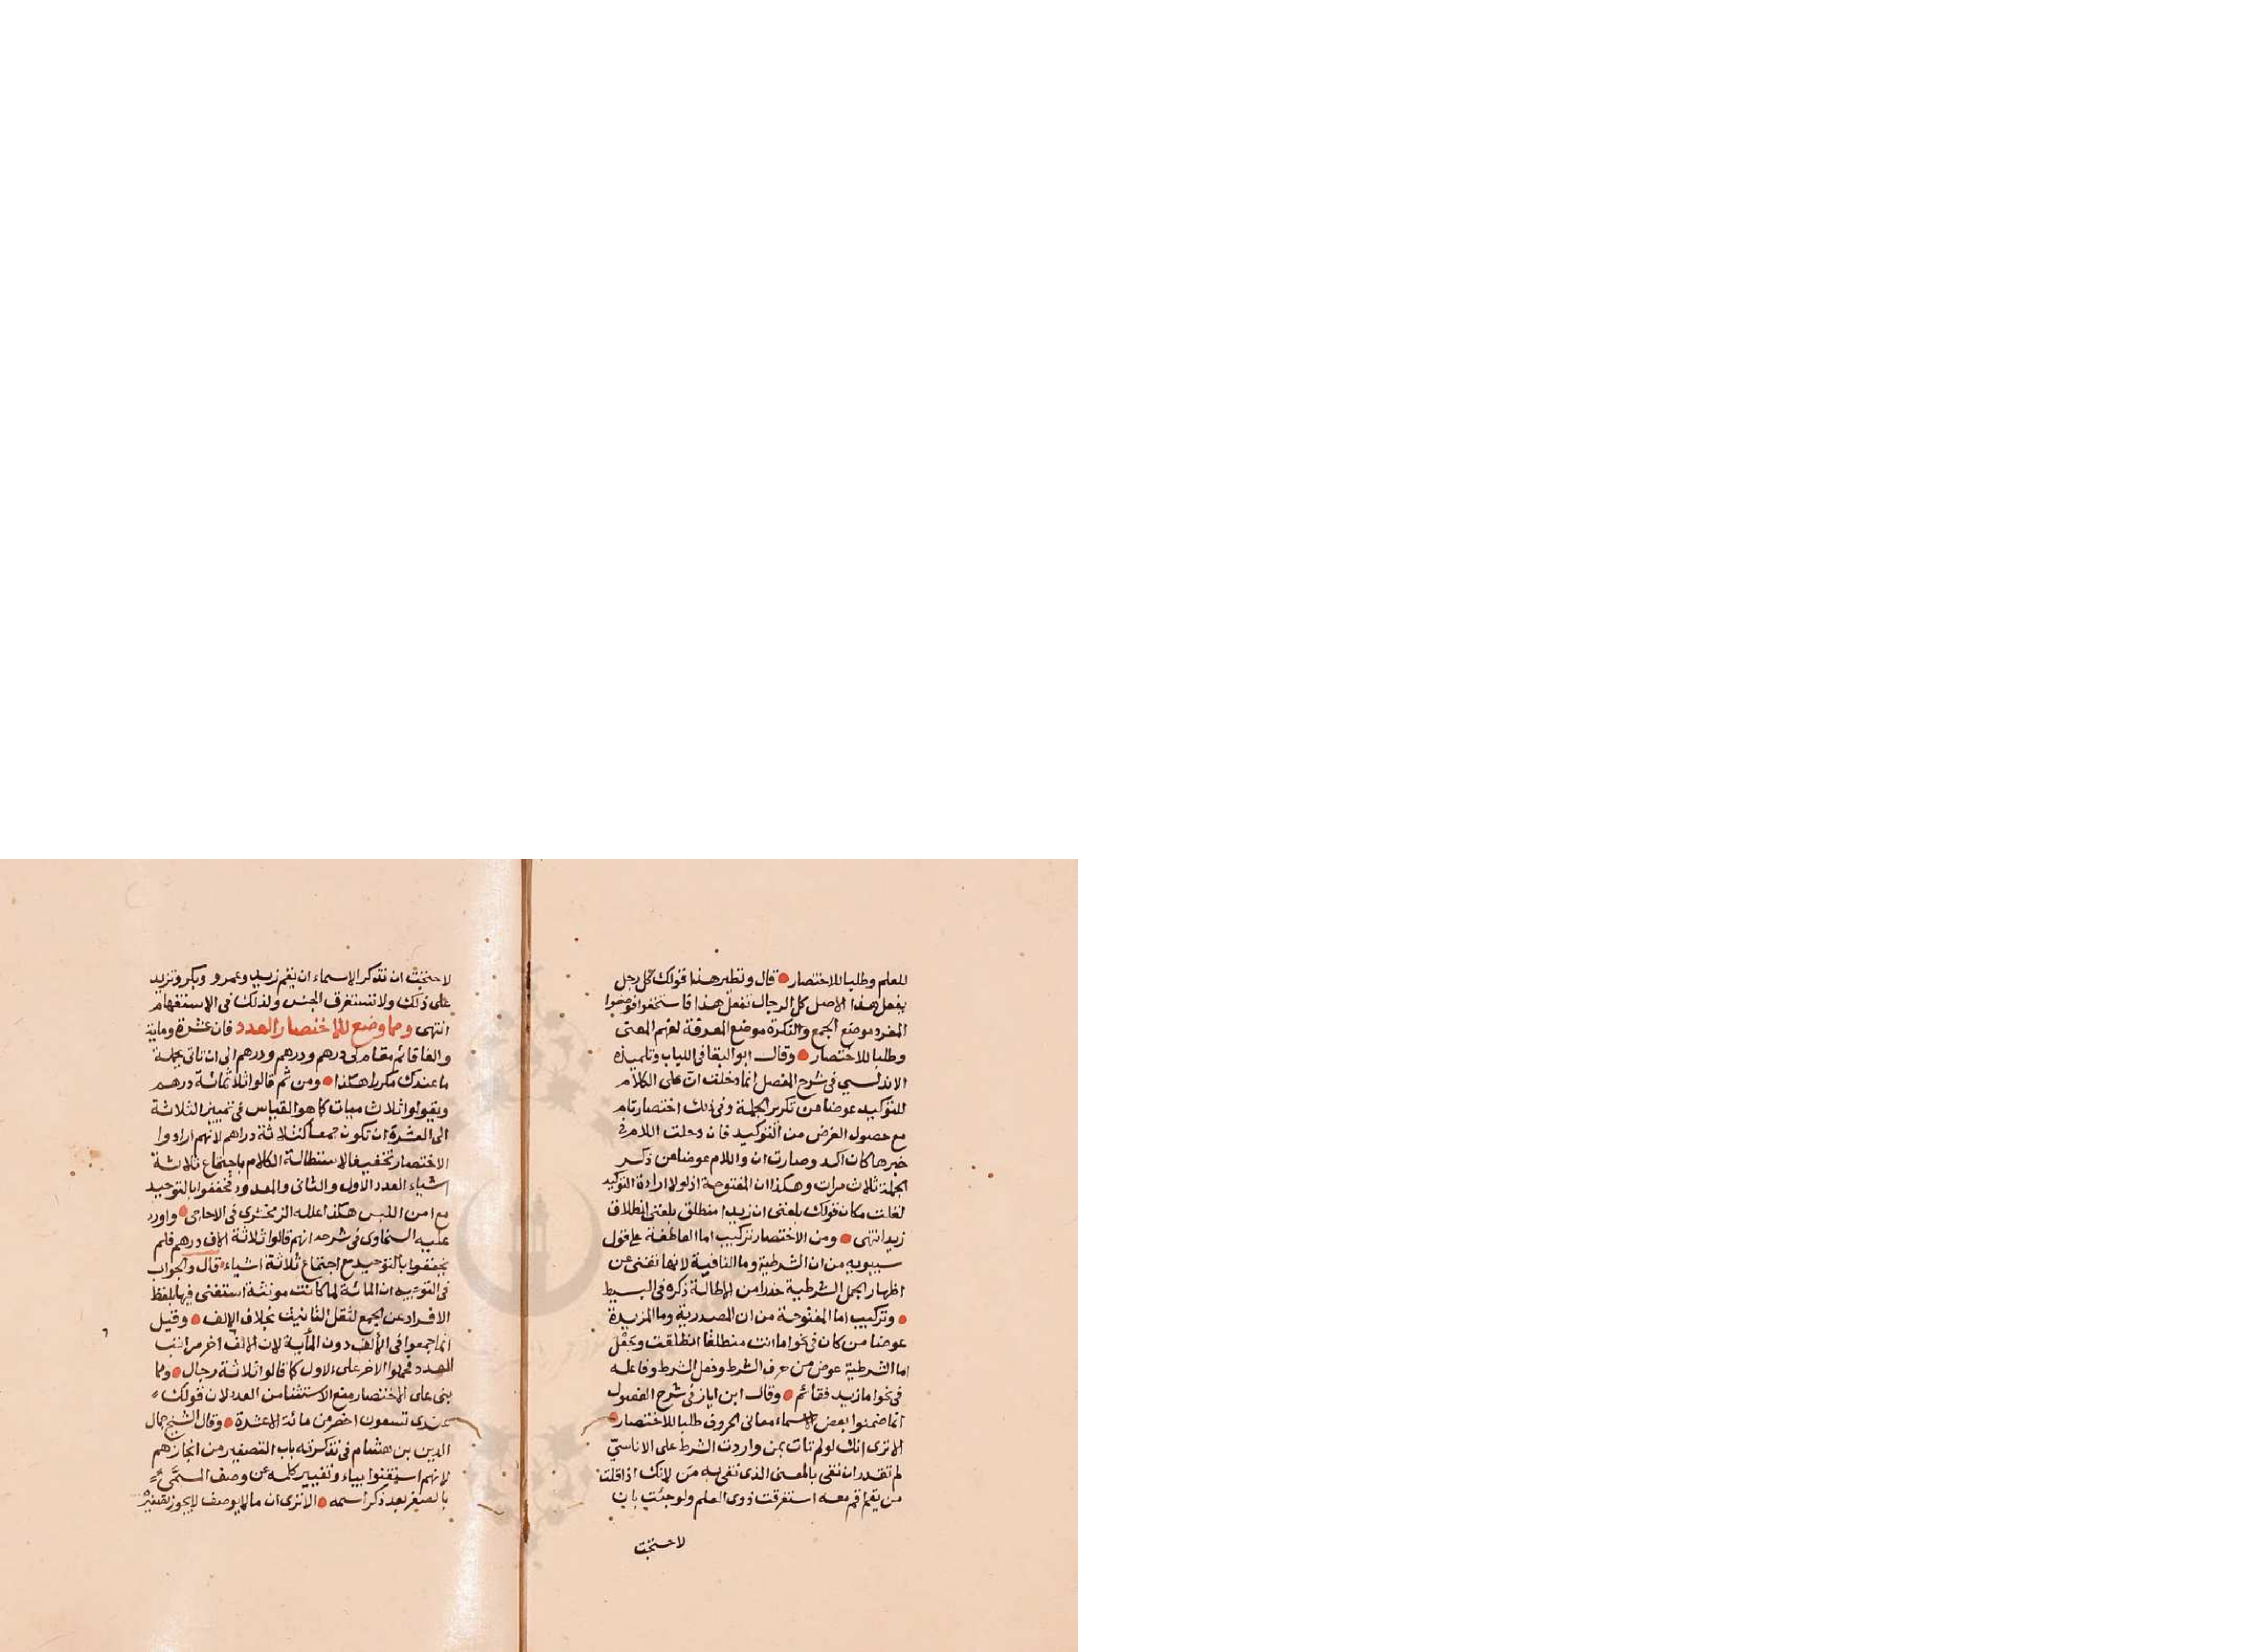 للعلم وطلبا للاختصار قال ونظير هذا قولك كل رجل
يفعل هذا الاصل كل الرجال تفعل هذا فاستخفوا فوضعوا
المفرد موضع الجمع والنكرة موضع المعرفة لفهم المعنى
وطلبا للاختصار وقال ابو البقا فى اللباب وتلميذه
الاندلسي فى شرح المفصل انما دخلت ان على الكلام
للتوكيد عوضا من تكرير الجملة وفى ذلك اختصار تام
مع حصول الغرض من التوكيد فان دخلت اللام فى
خبرها كان اكد وصارت ان واللام عوضا من ذكر
الجملة ثلاث مرات وهكذا ان المفتوحة اذ لولا ارادة التوكيد
لقلت مكان قولك بلغنى ان زيدا منطلق بلغنى انطلاق
زيد انتهى ومن الاختصار تركيب اما العاطفة على قول
سيبويه من ان الشرطية وما النافية لانها تغنى عن
اظهار الجمل الشرطية حذرا من الاطالة ذكره فى البسيط
وتركيب اما المفتوحة من ان المصدرية وما المزيدة
عوضا من كان فى نحو اما انت منطلقا انطلقت وبجعل
اما الشرطية عوض من حرف الشرط وفعل الشرط وفاعله
فى نحو اما زيد فقائم وقال ابن اياز فى شرح الفصول
انما ضمنوا بعض الاسماء معانى الحروف طلبا للاختصار
الا ترى انك لو لم تات بمن واردت الشرط على الاناسيّ
لم تقدر ان تفى بالمعنى الذى تفى به من لانك اذا قلت
من يقم اقم معه استغرقت ذوى العلم ولو جئت بان
لاحتجت
لاحتجت ان تذكر الاسماء ان يقم زيد وعمرو وبكر وتزيد
على ذلك ولا تستغرق الجنس ولذلك فى الاستفهام
انتهى ومما وضع للاختصار العدد فان عشرة ومايه
والفا قائم مقام درهم ودرهم ودرهم الى ان تاتى بجملة
ما عندك مكررا هكذا ومن ثم قالوا ثلاثمائة درهم
ويقولوا ثلاث ميات كما هو القياس فى تمييز الثلاثة
الى العشرة ان تكون جمعا كثلاثة دراهم لانهم ارادوا
الاختصار تخفيفا لاستطالة الكلام باجتماع ثلاثة
اشياء العدد الاول والثانى والمعدود فخففوا بالتوحيد
مع امن اللبس هكذا علله الزمخشرى فى الاحاجى واورد
عليه السخاوى فى شرحه انهم قالوا ثلاثة الاف درهم فلم
يخففوا بالتوحيد مع اجتماع ثلاثة اشياء قال والجواب
فى التوحيد ان المائة لما كانت مونثة استغنى فيها بلفظ
الافراد عن الجمع لثقل التانيث بخلاف الالف وقيل
انما جمعوا فى الألف دون المأية لان الالف اخر مراتب
العدد فحملوا الاخر على الاول كما قالوا ثلاثة رجال ومما
بنى على الاختصار منع الاستثنا من العدد لان قولك
عندى تسعون اخصر من مائة الاعشرة وقال الشيخ جمال
الدين بن هشام فى تذكرته باب التصغير من
لانهم استغنوا بياء وتغيير كلمه عن وصف المسمّى
بالصغر بعد ذكر اسمه الا ترى ان ما لا يوصف لا يجوز تصغيره